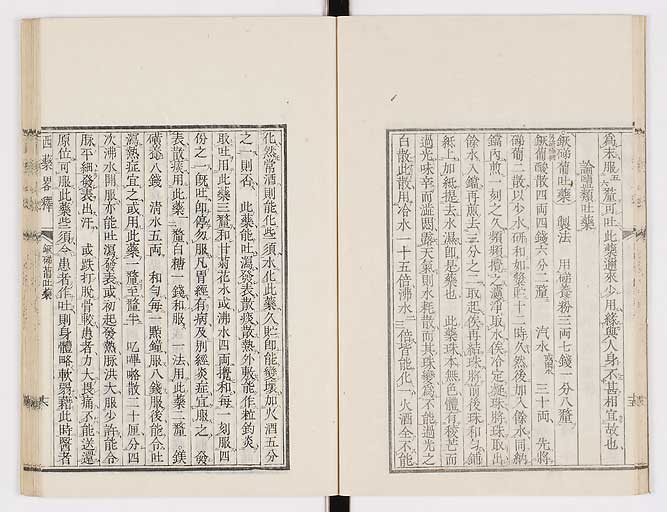 為末服五六釐可吐此藥邇來少用緣與人身不甚相宜故也
論鹽類吐藥
鋉硨葡吐藥 製法 用硨養粉三兩七錢一分八釐
鋉葡酸散四兩四錢六分二釐 汽水 三十兩 先將
硨葡二散以少水研和如漿正十二時久然後加入餘水同納
鐺內煎一刻之久頻頻攪之濾淨取水俟冷定凝珠將珠取出
餘水入鐺再熬去三分之一取起俟再結珠將前後珠和勻鋪
紙上加紙提去水濕即是藥也 此藥珠本無色體有稜芒而
過光味辛而澁悶露天氣則水耗散而其珠變為不能過光之
白散此散用冷水一十五倍沸水二倍皆能化 火酒全不能
化然常酒則能化些須水化此藥久貯即能變壞加火酒五分
之一則否 此藥能吐瀉發表散痰散熱外敷能作粒釣炎
取吐用此藥三釐和甘菊花水或沸水四兩攪和每一刻服四
份之一既吐即停勿服凡胃經有病及別經炎症宜服之 發
表散痰用此藥一釐白糖一錢和服 一法用此藥二釐 鎂
磺養八錢 清水五兩 和勻每一點鐘服八錢服後能令吐
瀉熱症宜之或用此藥一釐至釐半 叱嗶格散二十厘分四
次沸水開服亦能吐瀉發表或初起發熱脉洪大服少許能令
脉平細發表出汗 或跌打脫骨骹患者力大畏痛不能送還
原位可服此藥些須令患者作吐則身體略軟弱藉此時醫者
西藥畧釋
鋉硨葡吐藥